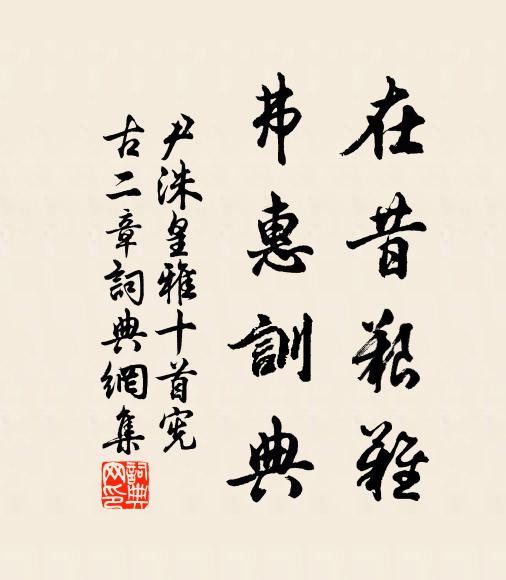 在昔艱難
弗惠訓典
尹洙皇雅十首宪
古二章詞典網集
詞典
网印